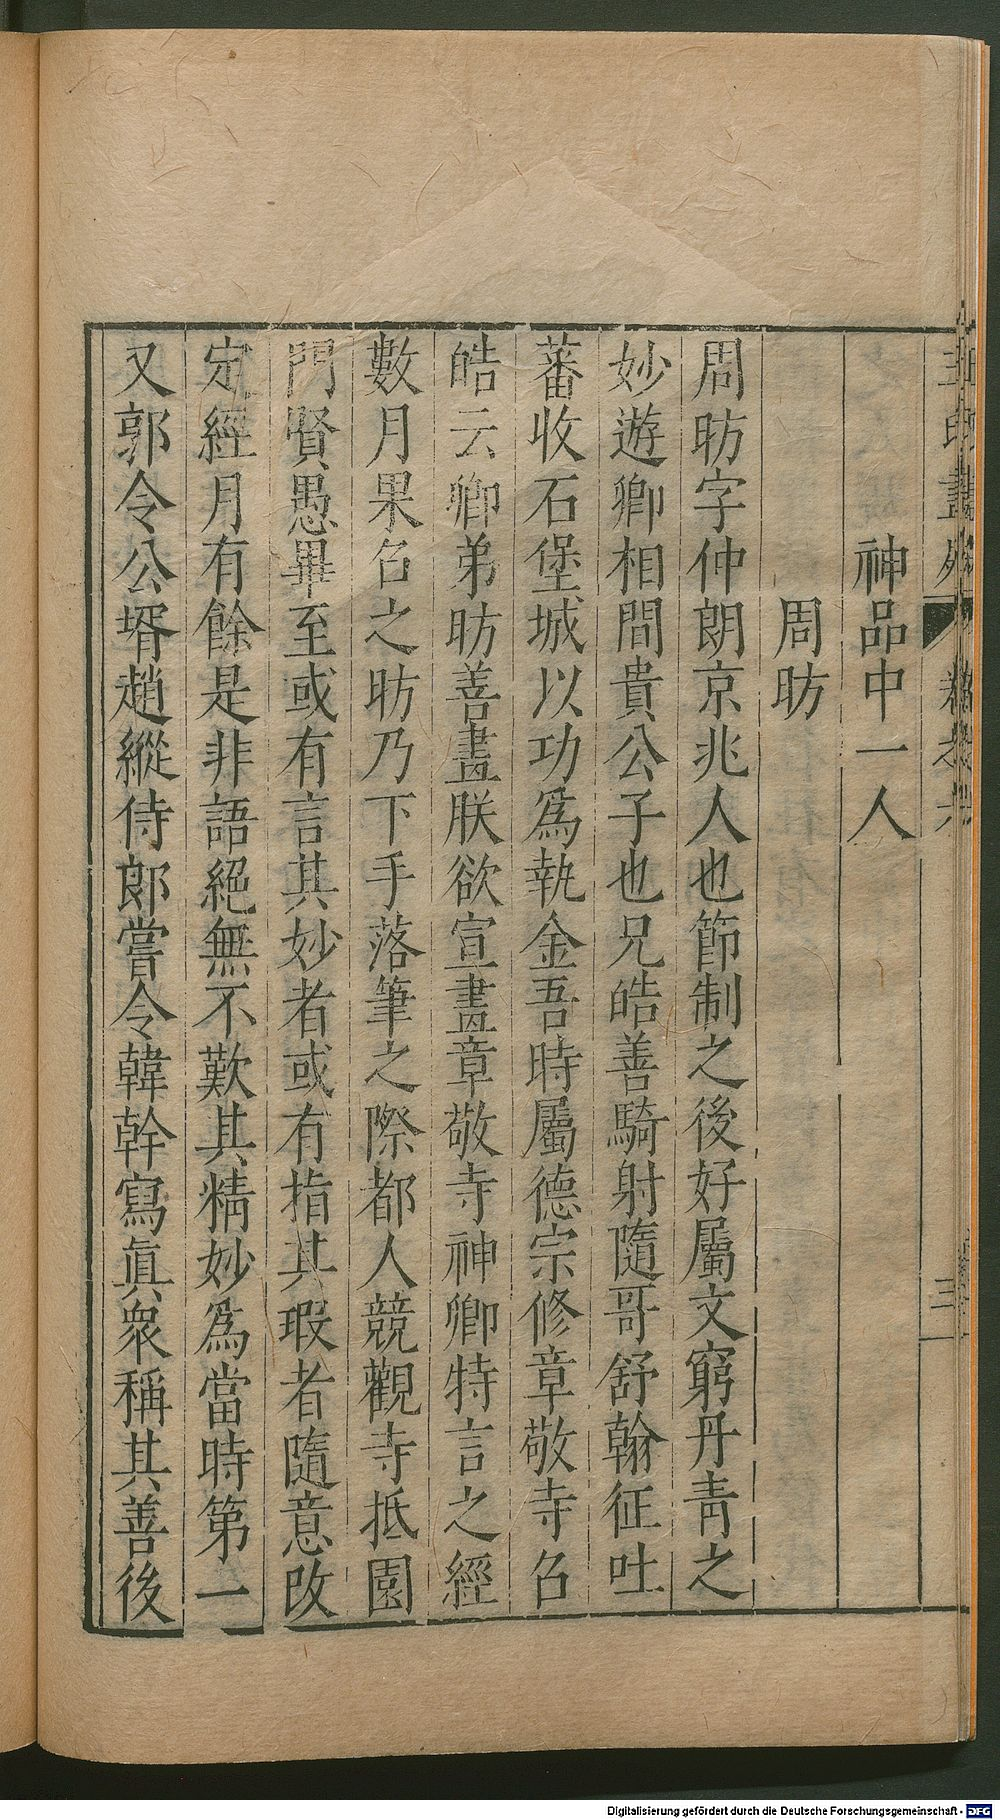 神品中一人
周昉
周昉字仲朗京兆人也節制之後好屬文窮丹青之
妙遊卿相間貴公子也兄皓善騎射隨哥舒翰征吐
蕃收石堡城以功爲執金吾時屬德宗修章敬寺召
皓云卿弟昉善畫朕欲宣畫章敬寺神卿特言之經
數月果召之昉乃下手落筆之際都人競觀寺抵園
門賢愚畢至或有言其妙者或有指其瑕者隨意改
定經月有餘是非語絕無不歎其精妙爲當時第一
又郭令公壻趙縱侍郎嘗令韓幹寫眞衆稱其善後
三
Digitalisierung gefördert durch die Deutsche Forschungsgemeinschaft - DFG